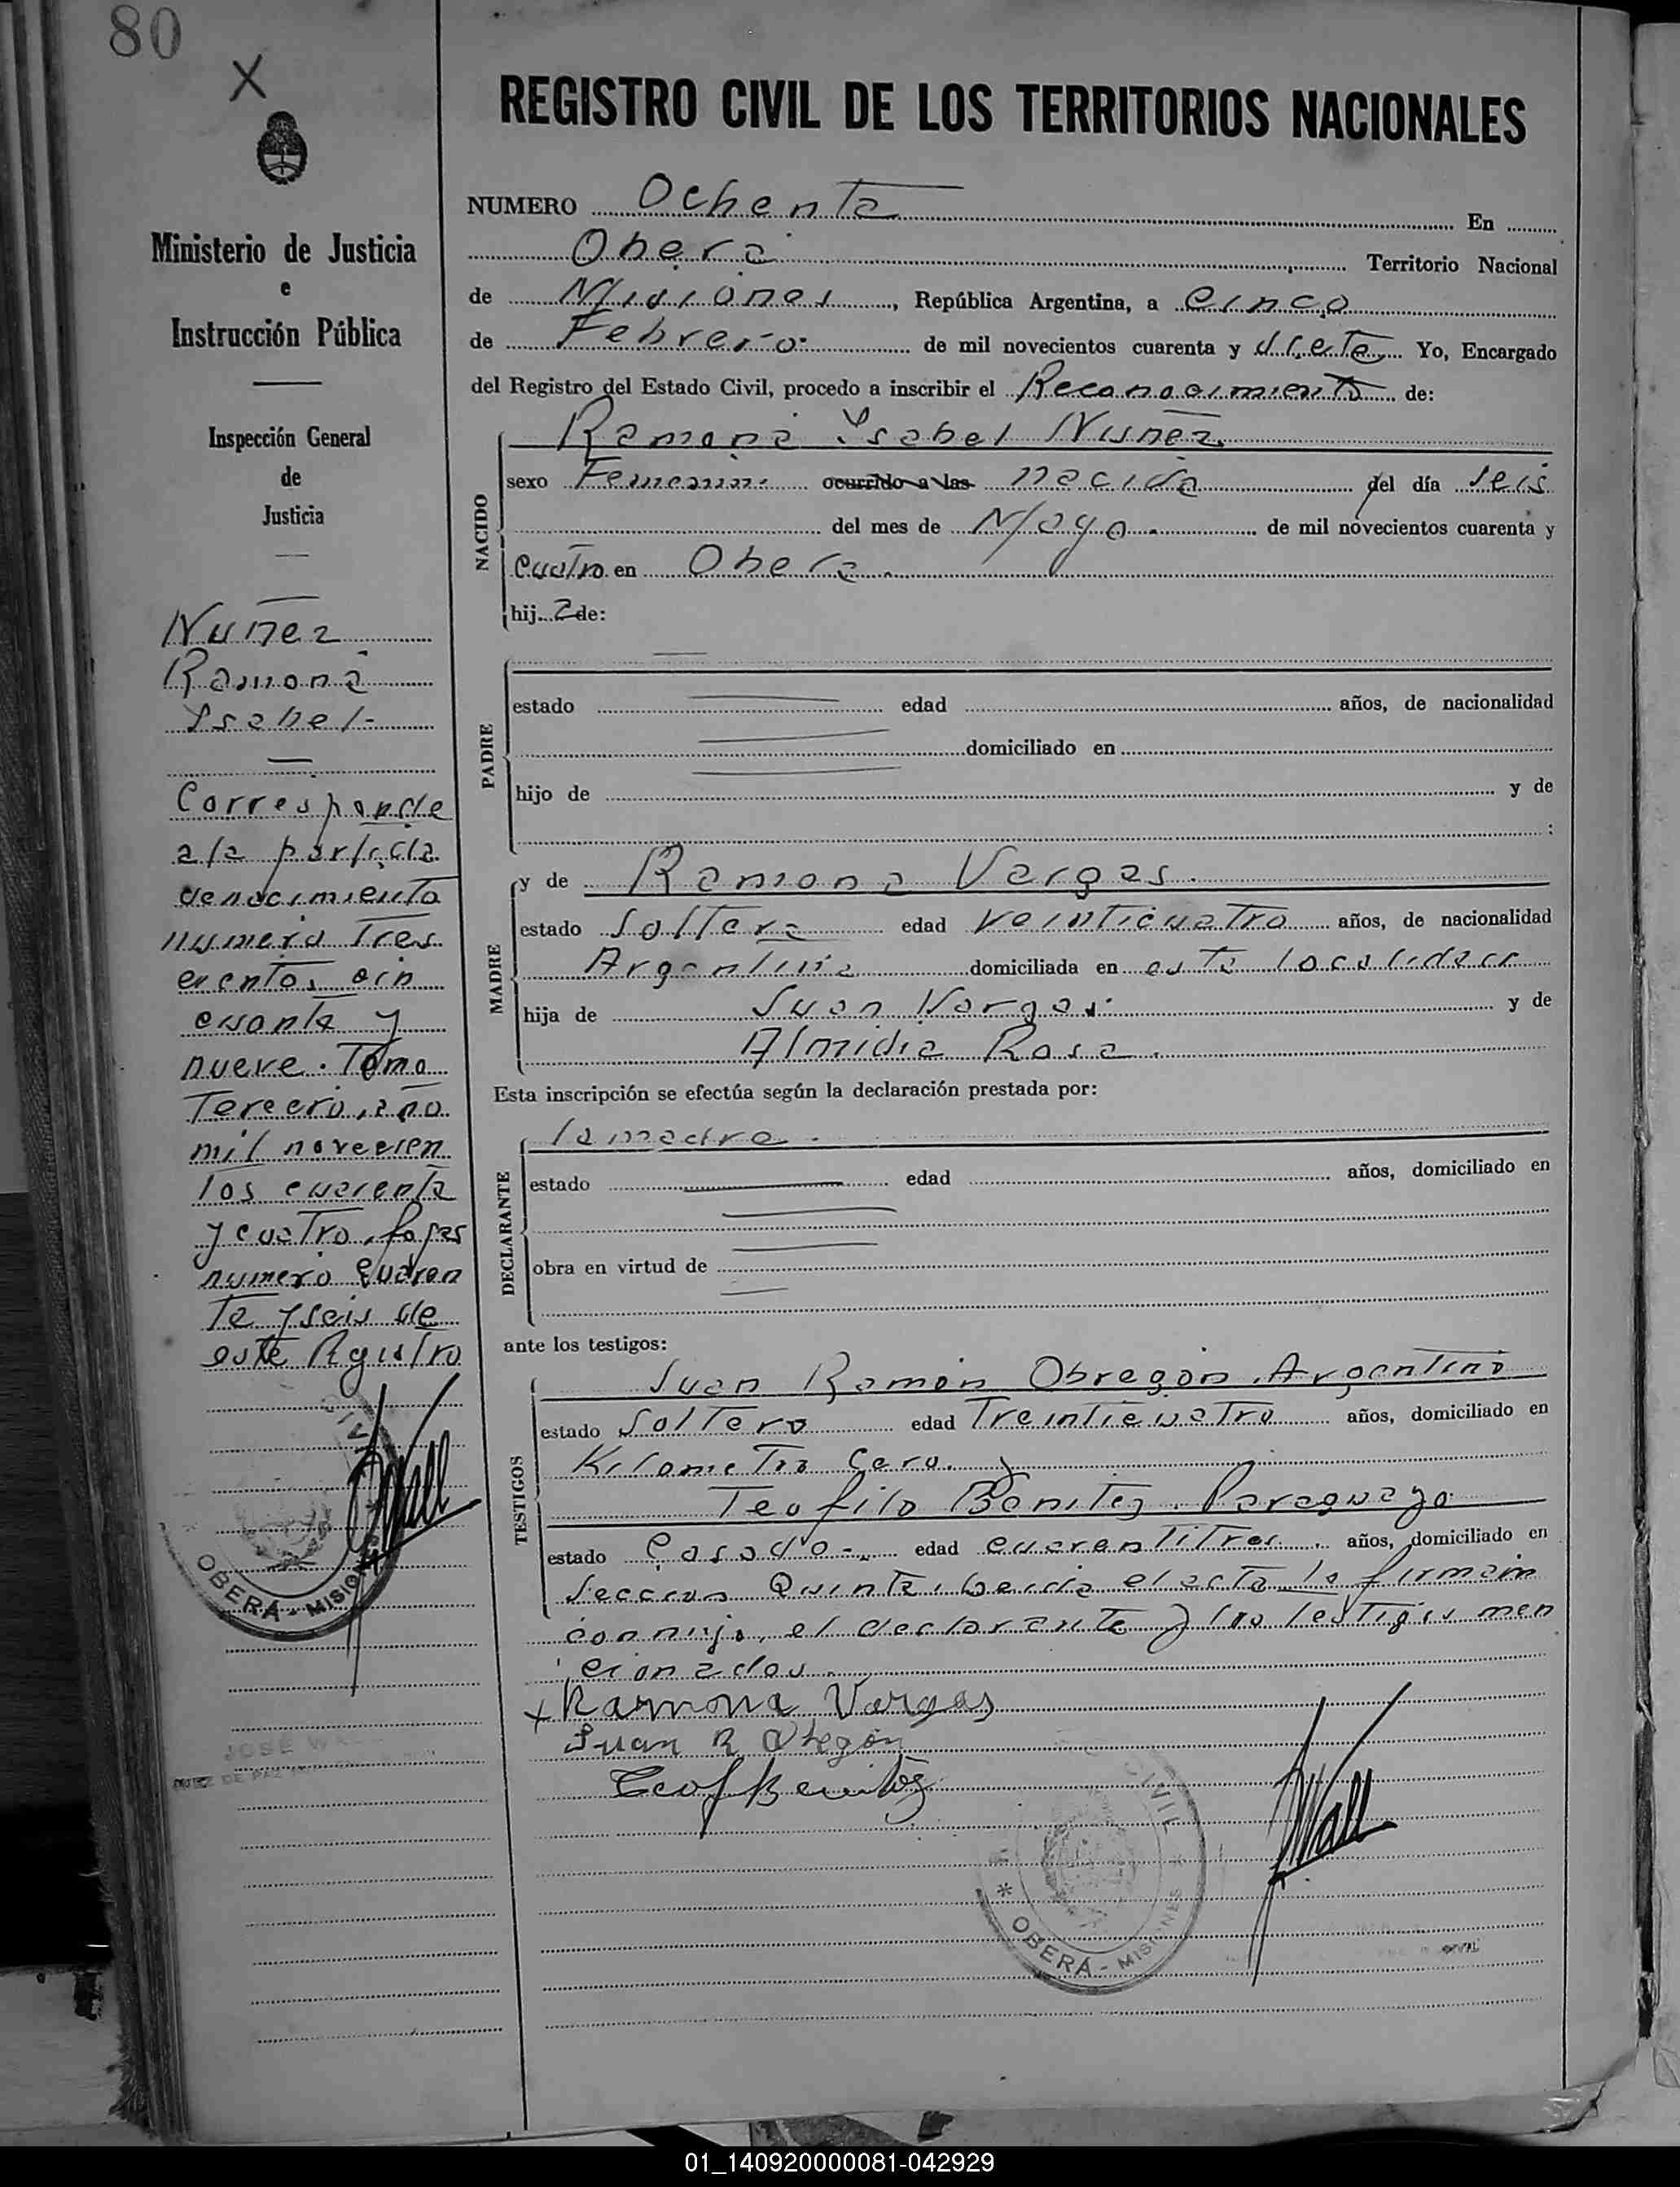 80
X
Ministerio de Justicia
e
Instrucción Pública
Inspección General
de
Justicia
Nuñez
Ramona
Ysabel-
Corresponde
a la partida
de nacimiento
numero Tres
cientos cin
cuanta y
nueve. Tomo
Tercero, año
mil novecien
tos cuarenta
y cuatro, fojas
numero cuaren
ta y seis de
este Rgistro
OBERÁ - MISIONES
REGISTRO CIVIL DE LOS TERRITORIOS NACIONALES
NUMERO Ochenta En
Oberá Territorio Nacional
de Misiones, República Argentina, a cinco
de Febrero de mil novecientos cuarenta y siete Yo, Encargado
del Registro del Estado Civil, procedo a inscribir el Reconocimiento de:
NACIDO
Ramona Ysabel Nuñez
sexo Femenino ocurrido a las nacida del día seis
del mes de Mayo. de mil novecientos cuarenta y
cuatro en Obera.
hij a de:
PADRE
estado edad años, de nacionalidad
domiciliado en
hijo de y de
:
MADRE
y de Ramona Vargas.
estado Soltera edad veinticuatro años, de nacionalidad
Argentina domiciliada en esta localidad
hija de Juan Vargas y de
Almidia Rosa.
Esta inscripción se efectúa según la declaración prestada por:
DECLARANTE
la madre.
estado edad años, domiciliado en
obra en virtud de
ante los testigos:
TESTIGOS
Juan Ramón Obregón, Argentino
estado Soltero edad Treinticuatro años, domiciliado en
Kilometro Cero. y
Teofilo Benitez. Paraguayo
estado Casado-. edad cuarentitres. años, domiciliado en
Seccion Quinta, Leida el acta la firman
conmigo, el declarante y los testigos men
cionados.
x Ramona Vargas
Juan R Obregón
Teof Benitez
CIVIL
OBERÁ - MISIONES
01_140920000081-042929